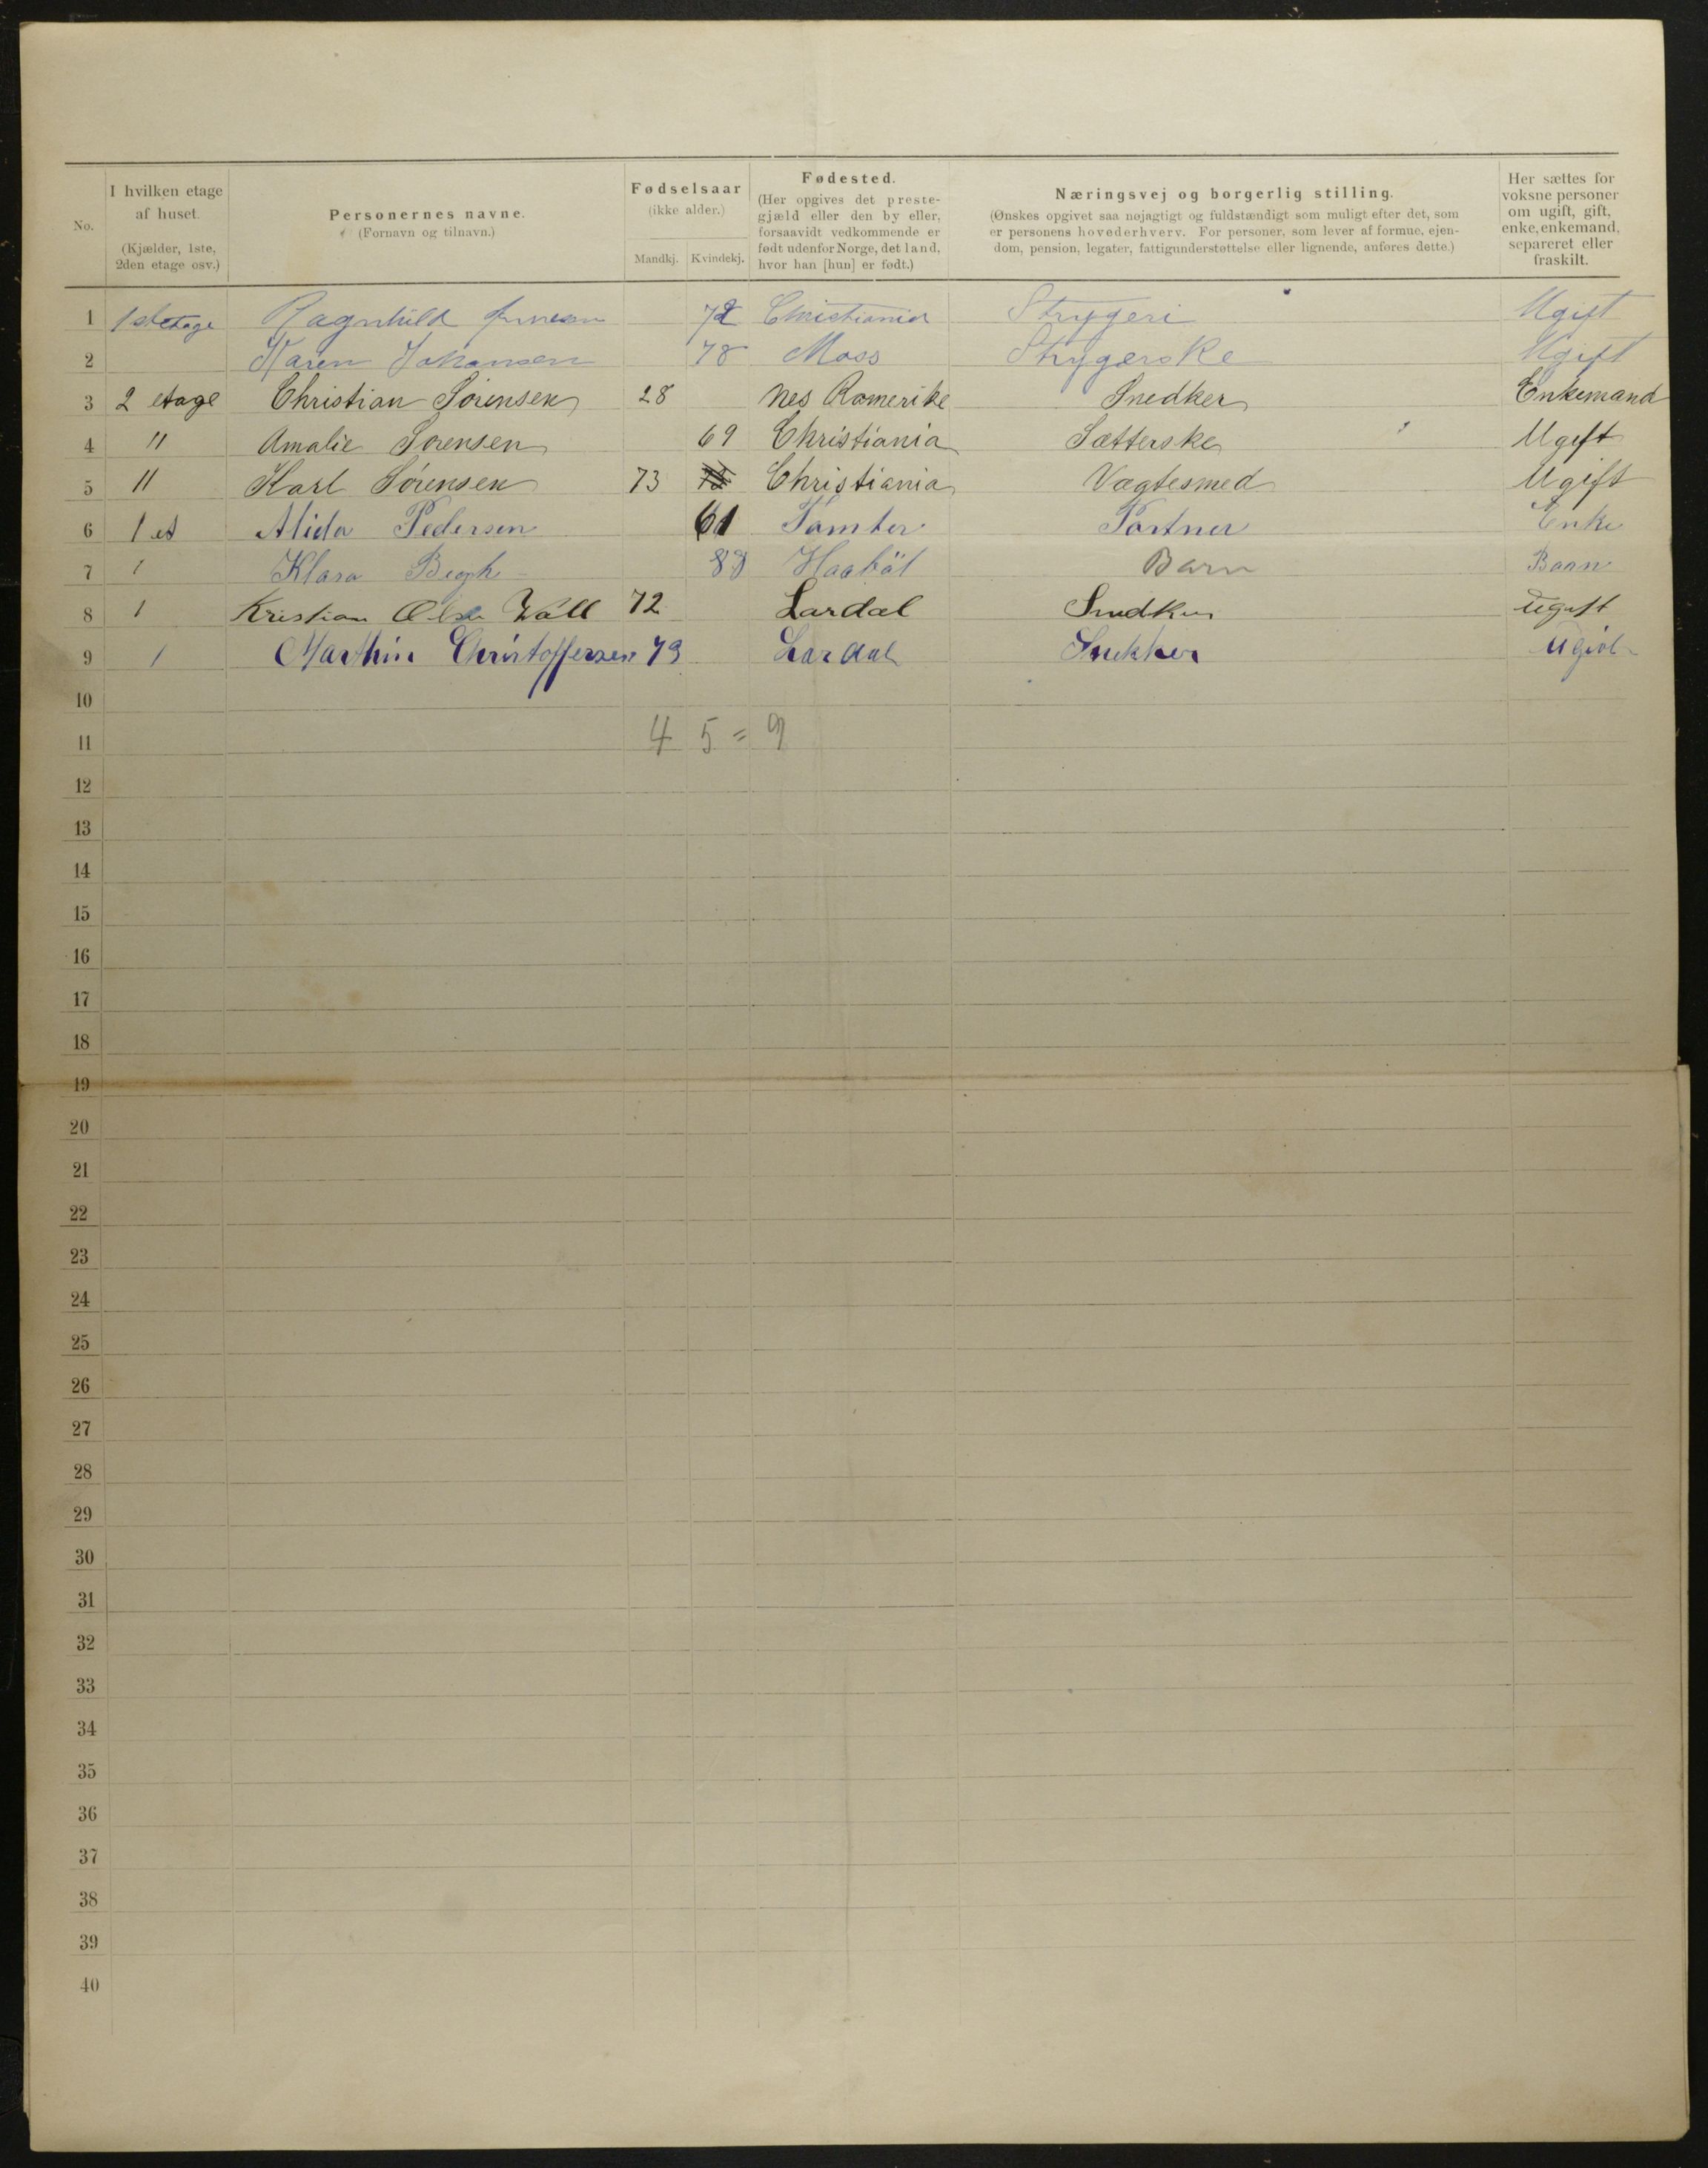 No.
I hvilken etage af huset. (Kjælder, 1ste, 2den etage osv.)
Personernes navne. (Fornavn og tilnavn.)
Fødselsaar (ikke alder.) Mandkj. Kvindekj.
Fødested. (Her opgives det prestegjæld eller den by eller, forsaavidt vedkommende er født udenfor Norge, det land, hvor han [hun] er født.)
Næringsvej og borgerlig stilling. (Ønskes opgivet saa nøjagtigt og fuldstændigt som muligt efter det, som er personens hovederhverv. For personer, som lever af formue, ejendom, pension, legater, fattigunderstøttelse eller lignende, anføres dette.)
Her sættes for voksne personer om ugift, gift, enke, enkemand, separeret eller fraskilt.
1 1stetage Ragnhild Christiania Strygeri Ugift
2 Karen Johansen 78 Moss Strygerske Ugift
3 2 etage Christian Sørensen 28 Nes Romerike Snedker Enkemand
4 " Amalie Sørensen 69 Christiania Sætterske Ugift
5 " Karl Sørensen 73 Christiania Vægtesmed Ugift
6 1 et Alida Pedersen 61 Tomter Portner Enke
7 1 Klara Haabøl Barn Barn
8 1 Kristian Olsen Wall 72 Lardal Snedker Ugift
9 1 Marthin Christoffersen 73 Lardal Snekker Ugivt
10
11 4 5 = 9
12
13
14
15
16
17
18
19
20
21
22
23
24
25
26
27
28
29
30
31
32
33
34
35
36
37
38
39
40